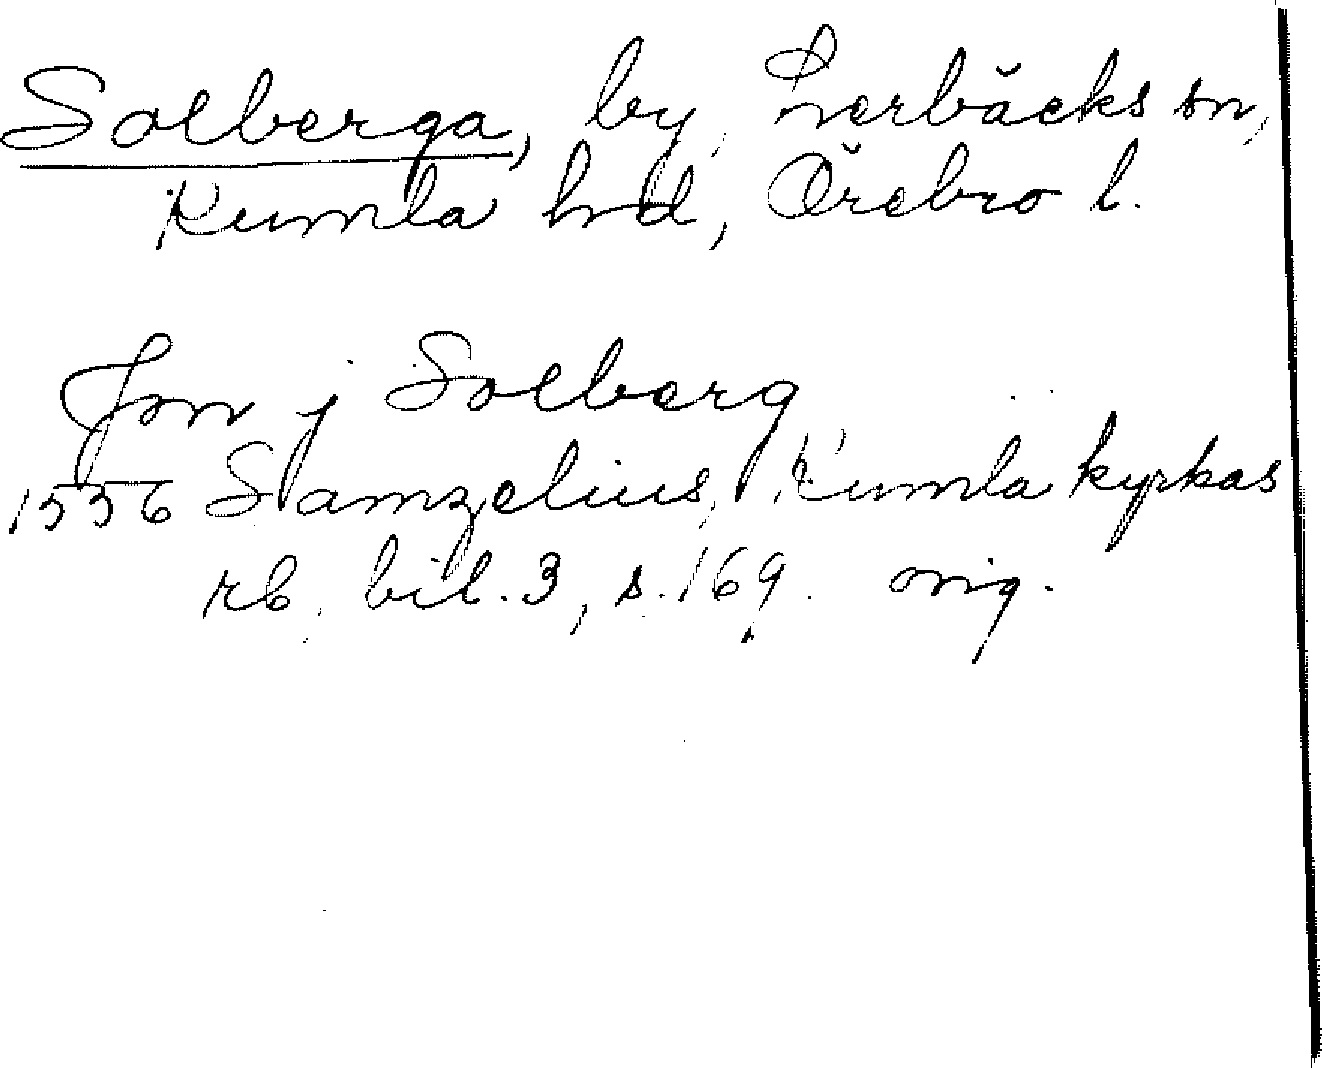 Solberga, by, Lerbäcks sn,
Kumla hd, Örebro l.
Jon j Solberg
1556 Samzelius, Kumla kyrkas
rb, bil. 3, s. 169. orig.